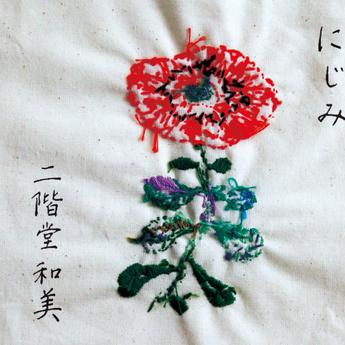 にじみ
二階堂和美